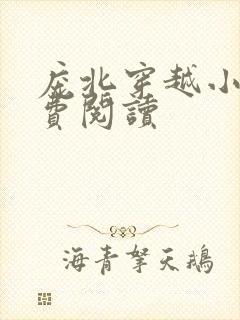 庶北穿越小
費閱讀
海青拏天鵝